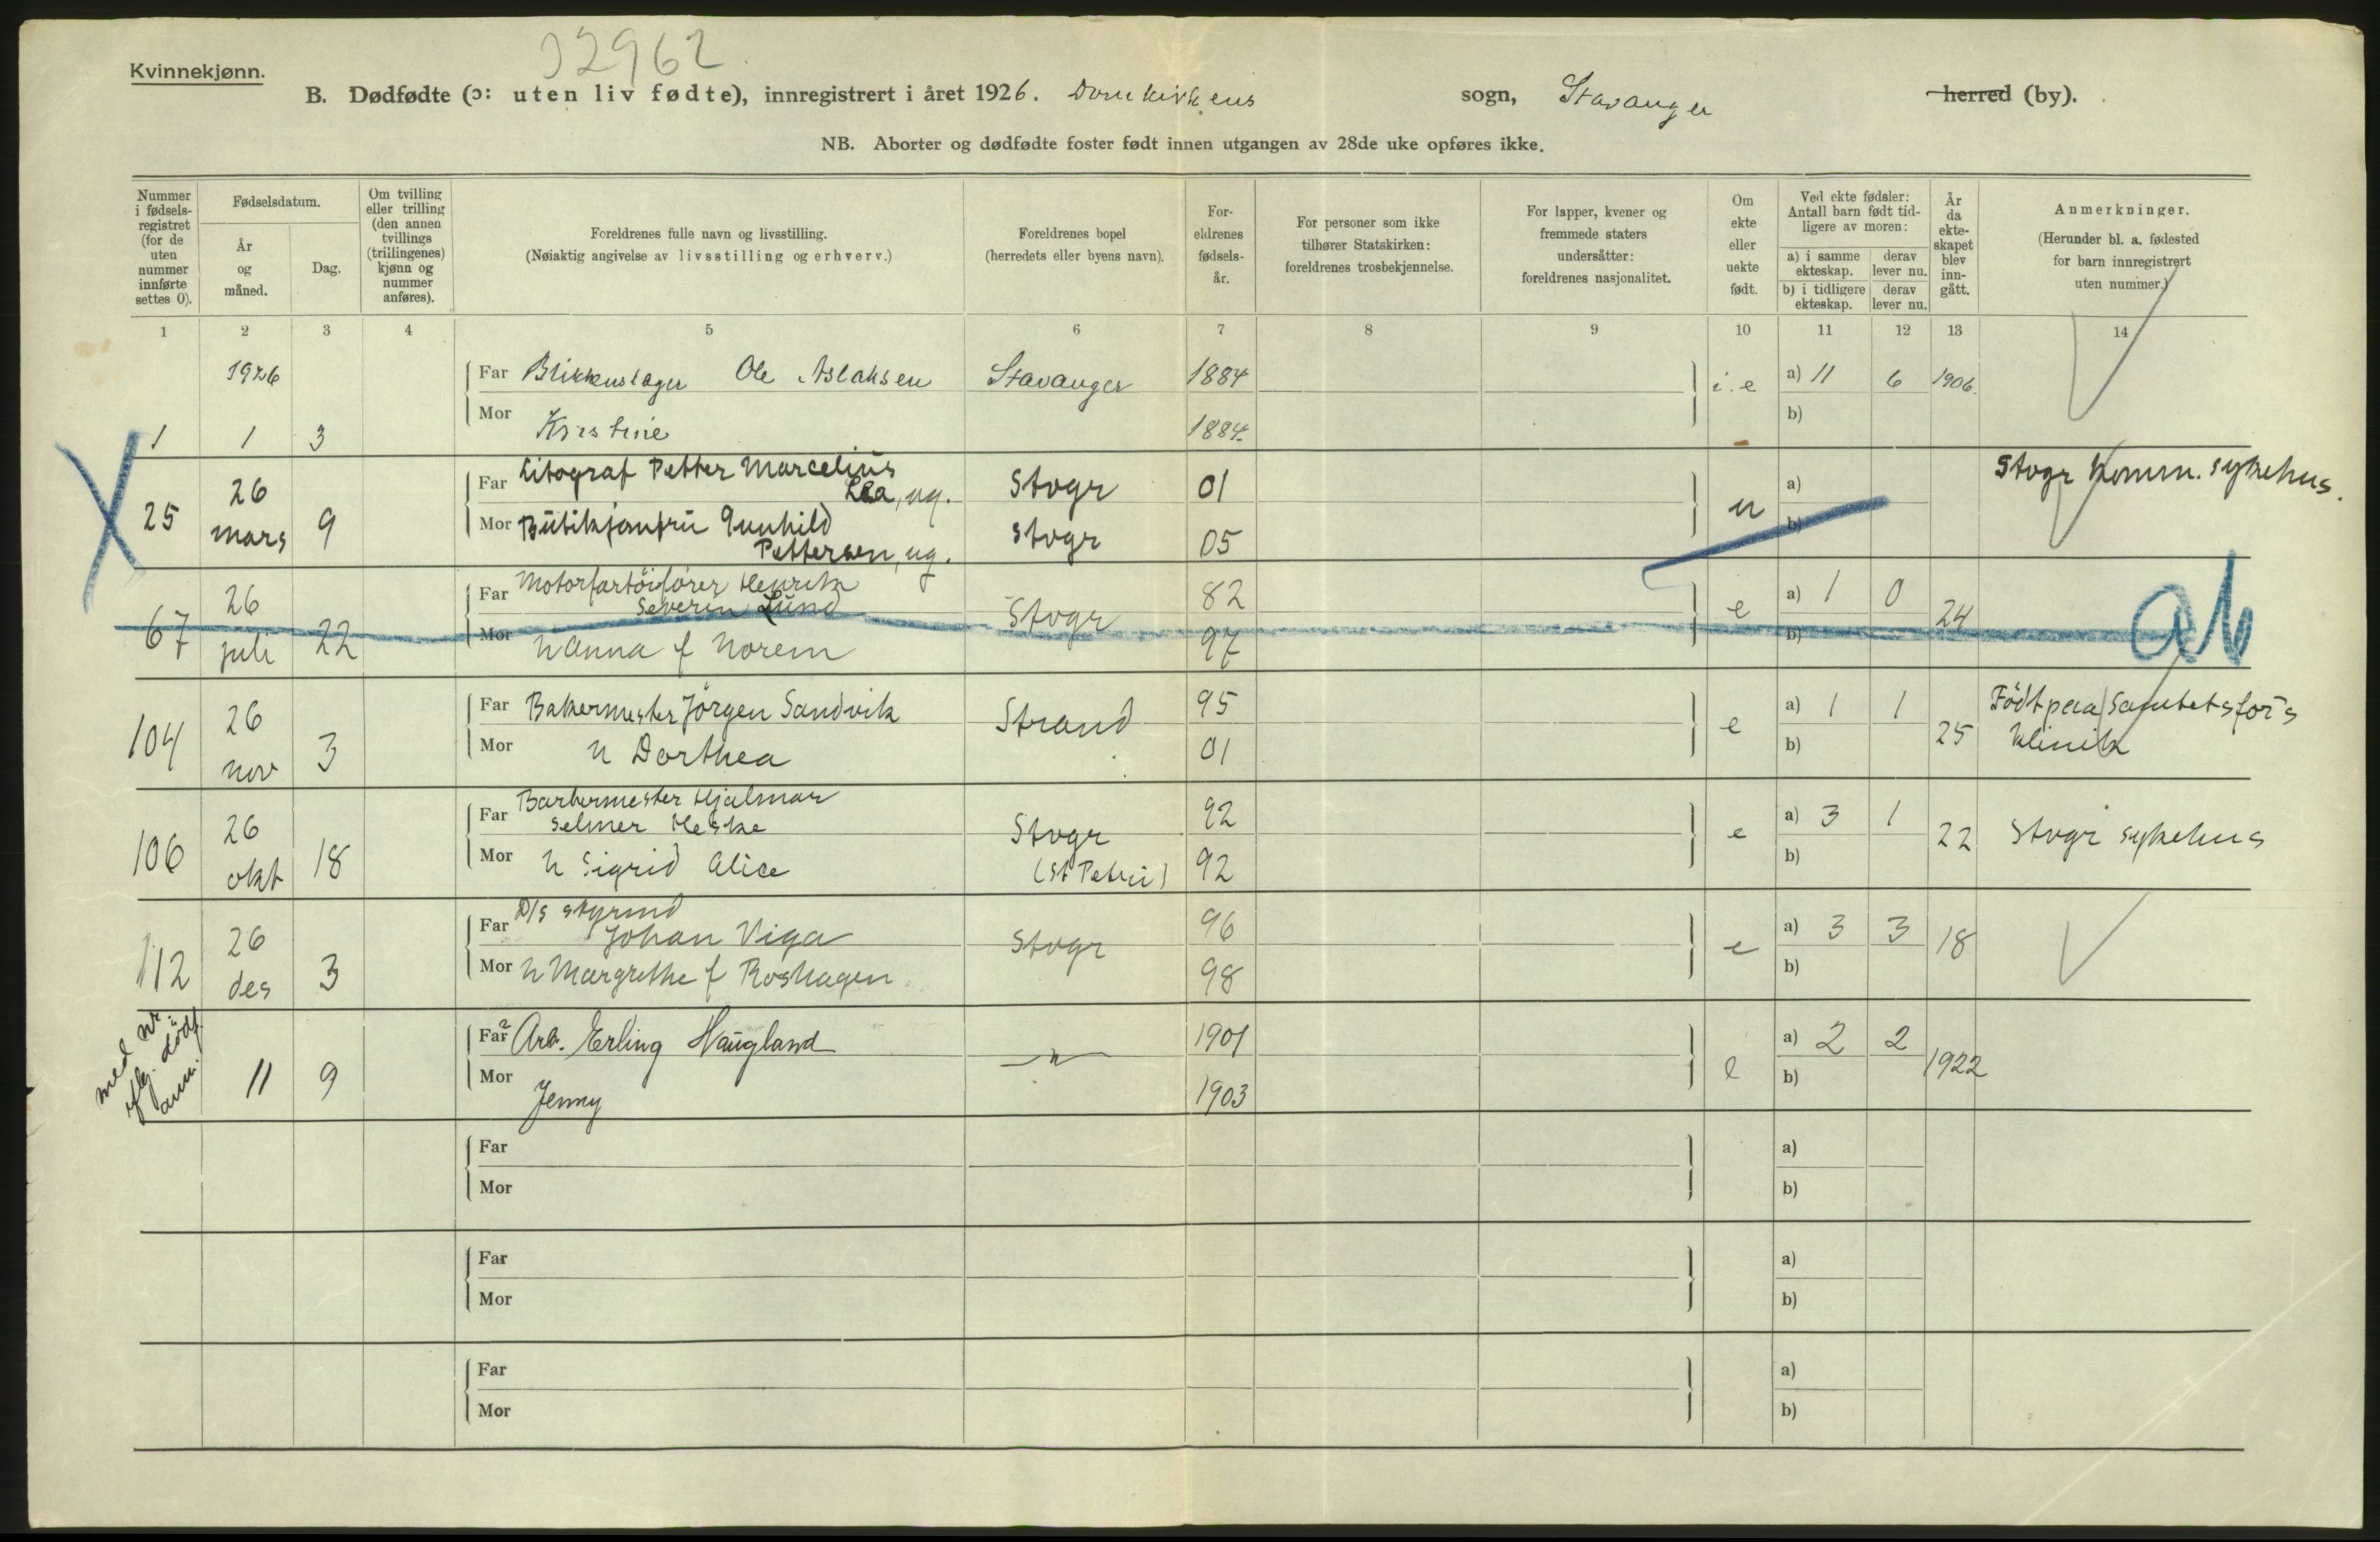 Kvinnekjønn.
32962
B. Dødfødte (ɔ: uten liv fødte), innregistrert i året 1926. Domkirkens sogn, Stavanger herred (by).
NB. Aborter og dødfødte foster født innen utgangen av 28de uke opføres ikke.
Nummer i fødsels-registret (for de uten nummer innførte settes 0).
Fødselsdatum.
År og måned.
Dag.
Om tvilling eller trilling (den annen tvillings (trillingenes) kjønn og nummer anføres).
Foreldrenes fulle navn og livsstilling.
(Nøiaktig angivelse av livsstilling og erhverv.)
Foreldrenes bopel
(herredets eller byens navn).
For-eldrenes fødsels-år.
For personer som ikke tilhører Statskirken: foreldrenes trosbekjennelse.
For lapper, kvener og fremmede staters undersåtter: foreldrenes nasjonalitet.
Om ekte eller uekte født.
Ved ekte fødsler: Antall barn født tid-ligere av moren:
a) i samme ekteskap.
derav lever nu.
b) i tidligere ekteskap.
derav lever nu.
År da ekte-skapet blev inn-gått.
Anmerkninger.
(Herunder bl. a. fødested for barn innregistrert uten nummer.)
1 2 3 4 5 6 7 8 9 10 11 12 13 14
1926
Far Blikkenslager Ole Aslaksen Stavanger 1884 i.e a) 11 6 1906.
Mor Kristine 1884. b)
1 1 3
Far Litograf Petter Marcelius Stvgr 01 u a) Stvgr Komm. sykehus.
Lea, ug.
25 26 mars 9
Mor Butikjomfru Gunhild Stvgr 05 b)
Pettersen, ug.
Far Motorfartöifører Henrik 82 e a) 1 0 24
Severin Lund Stvgr
67 26 juli 22
Mor h Anna f Norem 97 b) ab
Far Bakermester Jörgen Sandvik Strand 95 e a) 1 1 25 Födt paa Sanitetsfor's
104 26 nov 3
Mor h Dorthea 01 b) klinik
Far Barbermester Hjalmar 92 e a) 3 1 22 Stvgr sykehus
Selmer Heske Stvgr
106 26 okt 18
Mor h Sigrid Alice (St Petri) 92 b)
Far D/s styrmd 96 e a) 3 3 18
Johan Viga Stvgr
112 26 des 3
Mor h Margrethe f Roshagen 98 b)
med nr. dödf. anm.
Far Arb. Erling Haugland —"— 1901 e a) 2 2 1922
11 9
Mor Jenny 1903 b)
Far a)
Mor b)
Far a)
Mor b)
Far a)
Mor b)